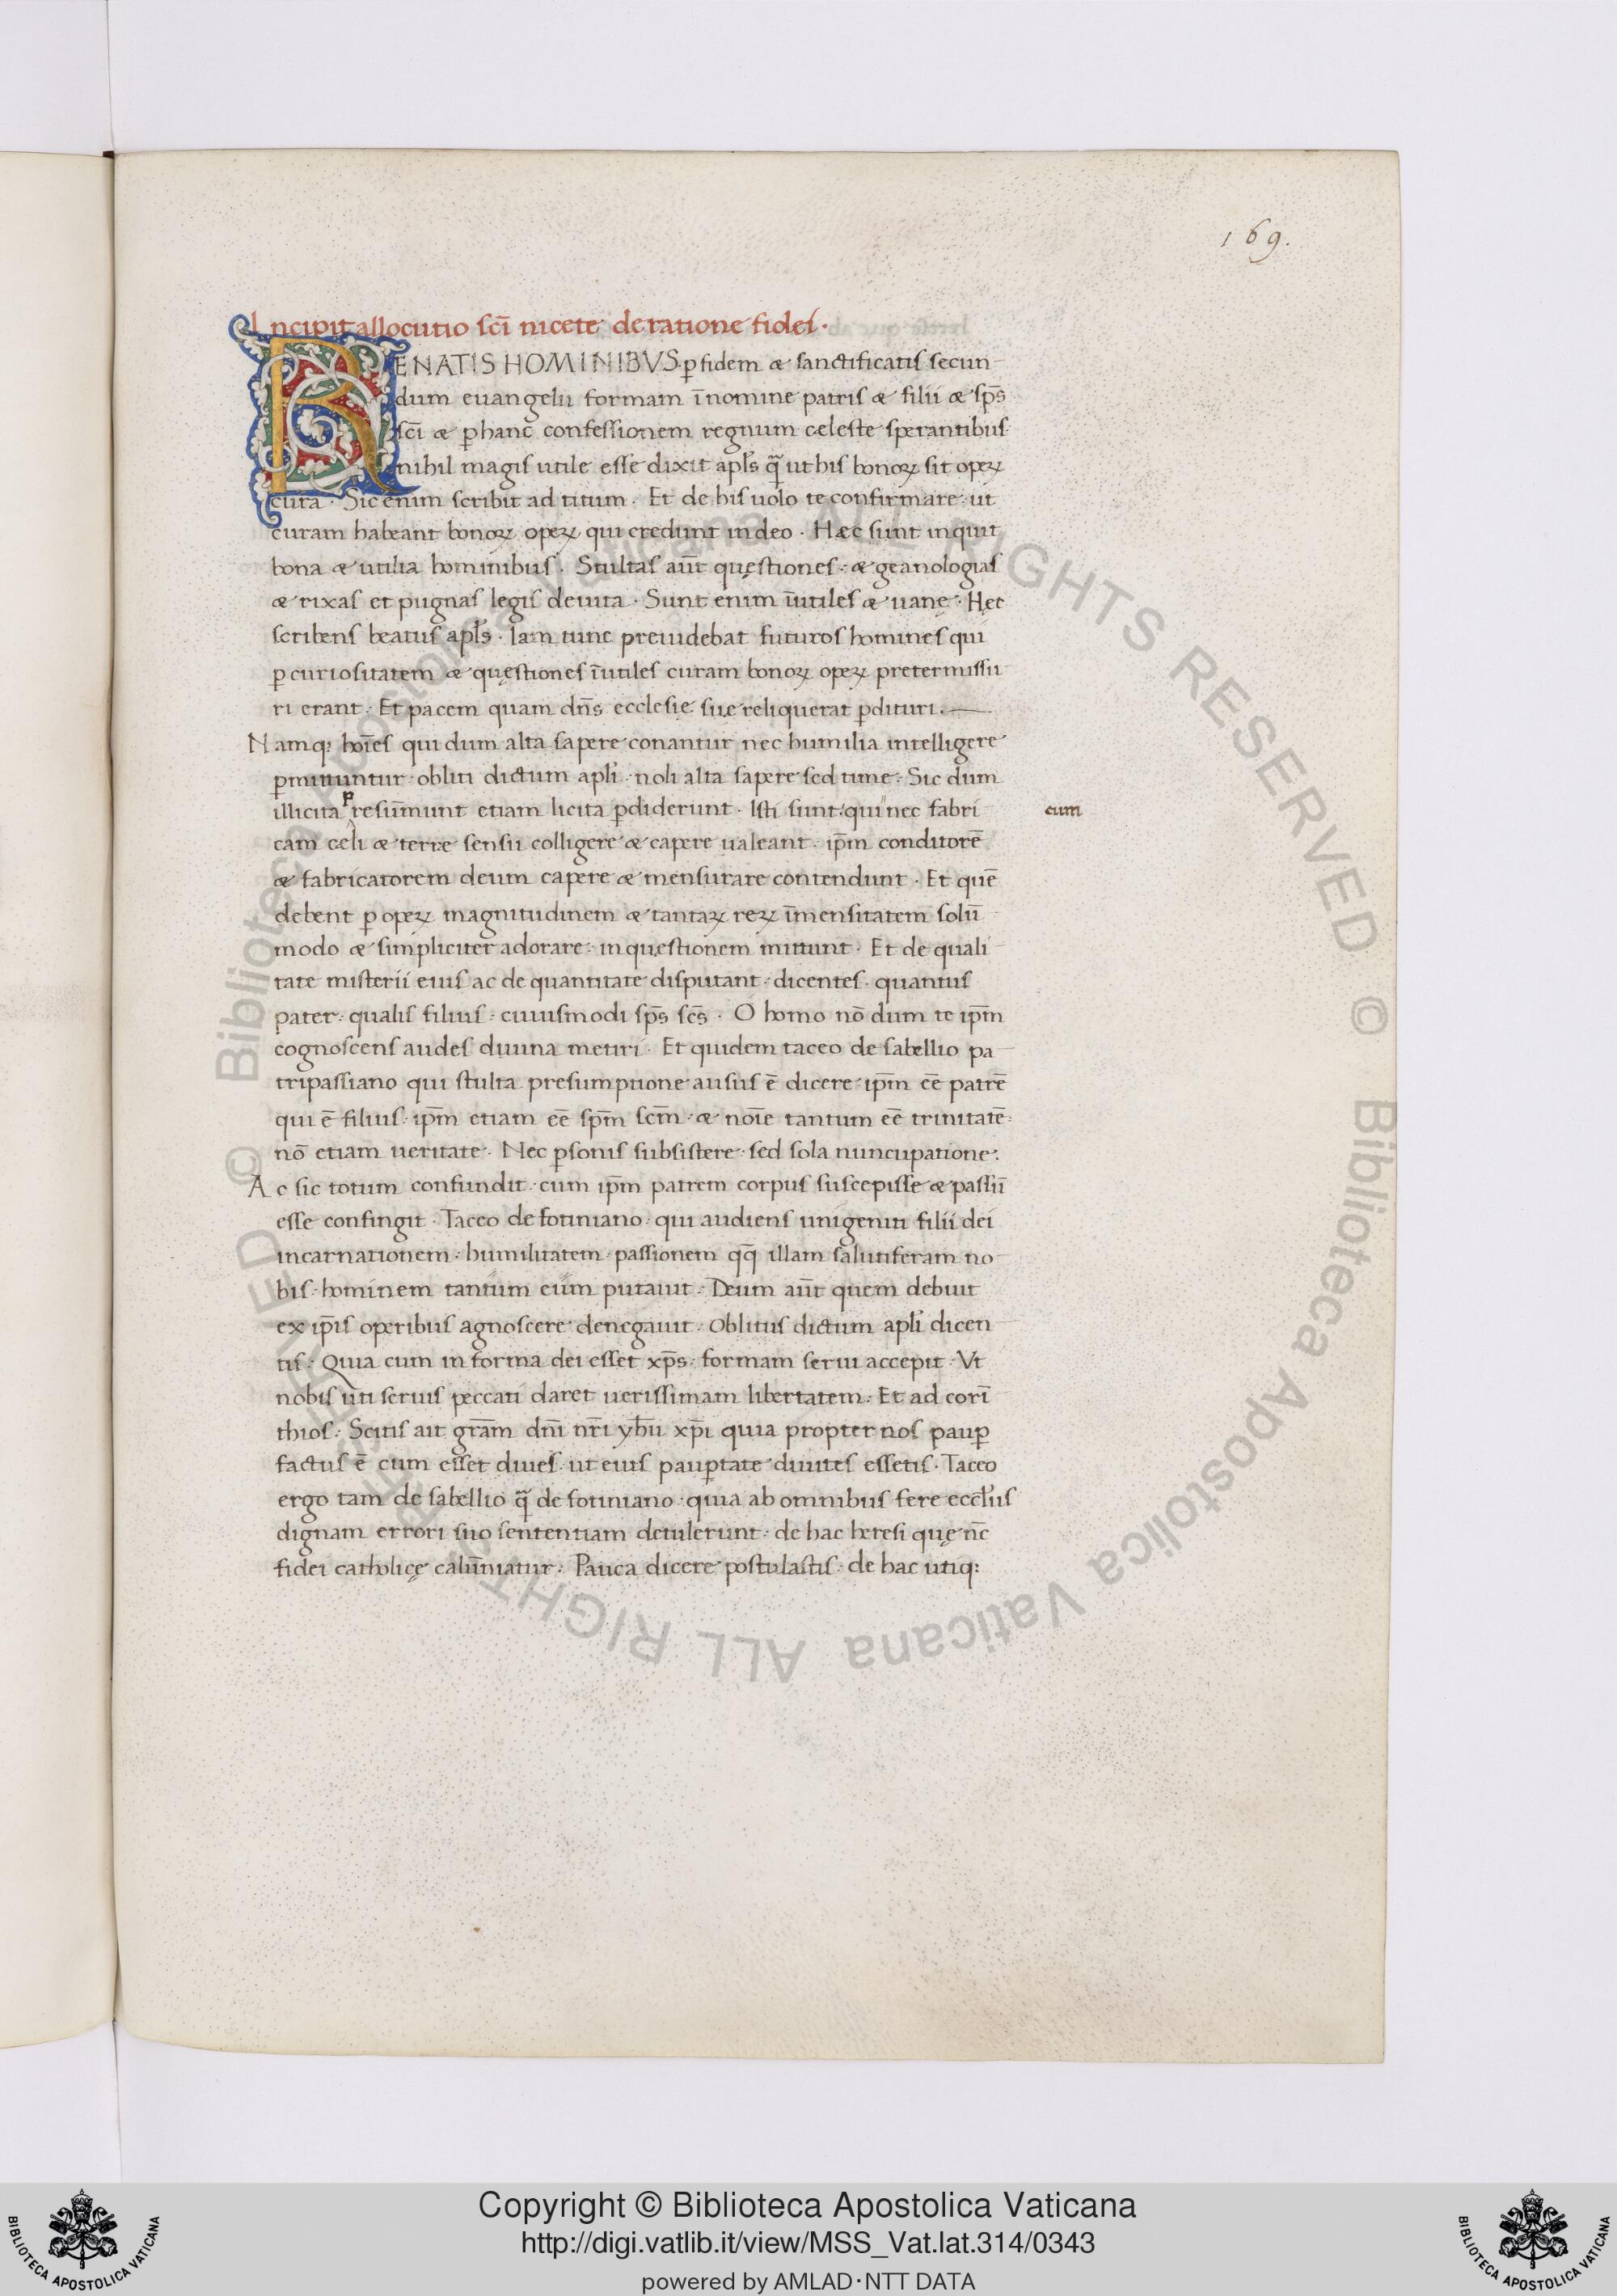 169.
Incipit allocutio sc̄i nicete de ratione fidei·
RENATIS HOMINIBVS ꝑ fidem æ sanctificatis secun
dum euangelii formam ī nomine patris æ filii æ sp̄s
sc̄i æ ꝑ hanc confessionem regnum celeste sperantibus
nihil magis utile esse dixit apl̓s q̄ ut his bonoꝝ sit opeꝝ
cura · Sic enim scribit ad titum · Et de his uolo te confirmare · ut
curam habeant bonoꝝ opeꝝ qui credunt in deo · Hæc sunt inquit
bona æ utilia hominibus · Stultas aūt quęstiones · æ geanologias
æ rixas et pugnas legis deuita · Sunt enim īutiles æ uanę · Hęc
scribens beatus apl̓s · Iam tunc preuidebat futuros homines qui
ꝑ curiositatem æ quęstiones īutiles curam bonoꝝ opeꝝ pretermissu
ri erant · Et pacem quam dn̄s ecclesię suę reliquerat ꝑdituri ·
Namq; hoīes qui dum alta sapere conantur nec humilia intelligere
ꝑmittuntur · obliti dictum apl̓i · noli alta sapere sed time · Sic dum
illicita presūmunt etiam licita ꝑdiderunt · Isti sunt · qui nec fabri
cum
cam cęli æ terre sensu colligere æ capere ualeant · ip̄m conditorē
æ fabricatorem deum capere æ mensurare contendunt · Et quē
debent ꝑ opeꝝ magnitudinem æ tantaꝝ reꝝ īmensitatem solū
modo æ simpliciter adorare · in quęstionem mittunt · Et de quali
tate misterii eius ac de quantitate disputant · dicentes · quantus
pater · qualis filius · cuiusmodi sp̄s sc̄s · O homo nō dum te ip̄m
cognoscens audes diuina metiri · Et quidem taceo de sabellio pa
tripassiano qui stulta presumptione ausus ē dicere · ip̄m eē patrē
qui ē filius · ip̄m etiam eē sp̄m sc̄m · æ noīe tantum eē trinitatē ·
nō etiam ueritate · Nec ꝑsonis subsistere · sed sola nuncupatione ·
Ac sic totum confundit · cum ip̄m patrem corpus suscepisse æ passū
esse confingit · Taceo de fotiniano · qui audiens unigeniti filii dei
incarnationem · humilitatem · passionem qq̄ illam salutiferam no
bis · hominem tantum eum putauit · Deum aūt quem debuit
ex ip̄is operibus agnoscere denegauit · Oblitus dictum apl̓i dicen
tis · Quia cum in forma dei esset xp̄s · formam serui accepit · Vt
nobis uti seruis peccati daret uerissimam libertatem · Et ad corī
thios · Scitis ait gr̄am dn̄i nr̄i yh̄u xp̄i quia propter nos pauꝑ
factus ē cum esset diues · ut eius pauꝑtate diuites essetis · Taceo
ergo tam de sabellio q̄ de fotiniano · quia ab omnibus fere eccl̓iis
dignam errori suo sententiam detulerunt · de hac heresi quę nc̄
fidei catholicę calūniatur · Pauca dicere postulastis · de hac utiq;
Copyright © Biblioteca Apostolica Vaticana
http://digi.vatlib.it/view/MSS_Vat.lat.314/0343
powered by AMLAD·NTT DATA
BIBLIOTECA APOSTOLICA VATICANA
BIBLIOTECA APOSTOLICA VATICANA
© Biblioteca Apostolica Vaticana ALL RIGHTS RESERVED © Biblioteca Apostolica Vaticana ALL RIGHTS RESERVED